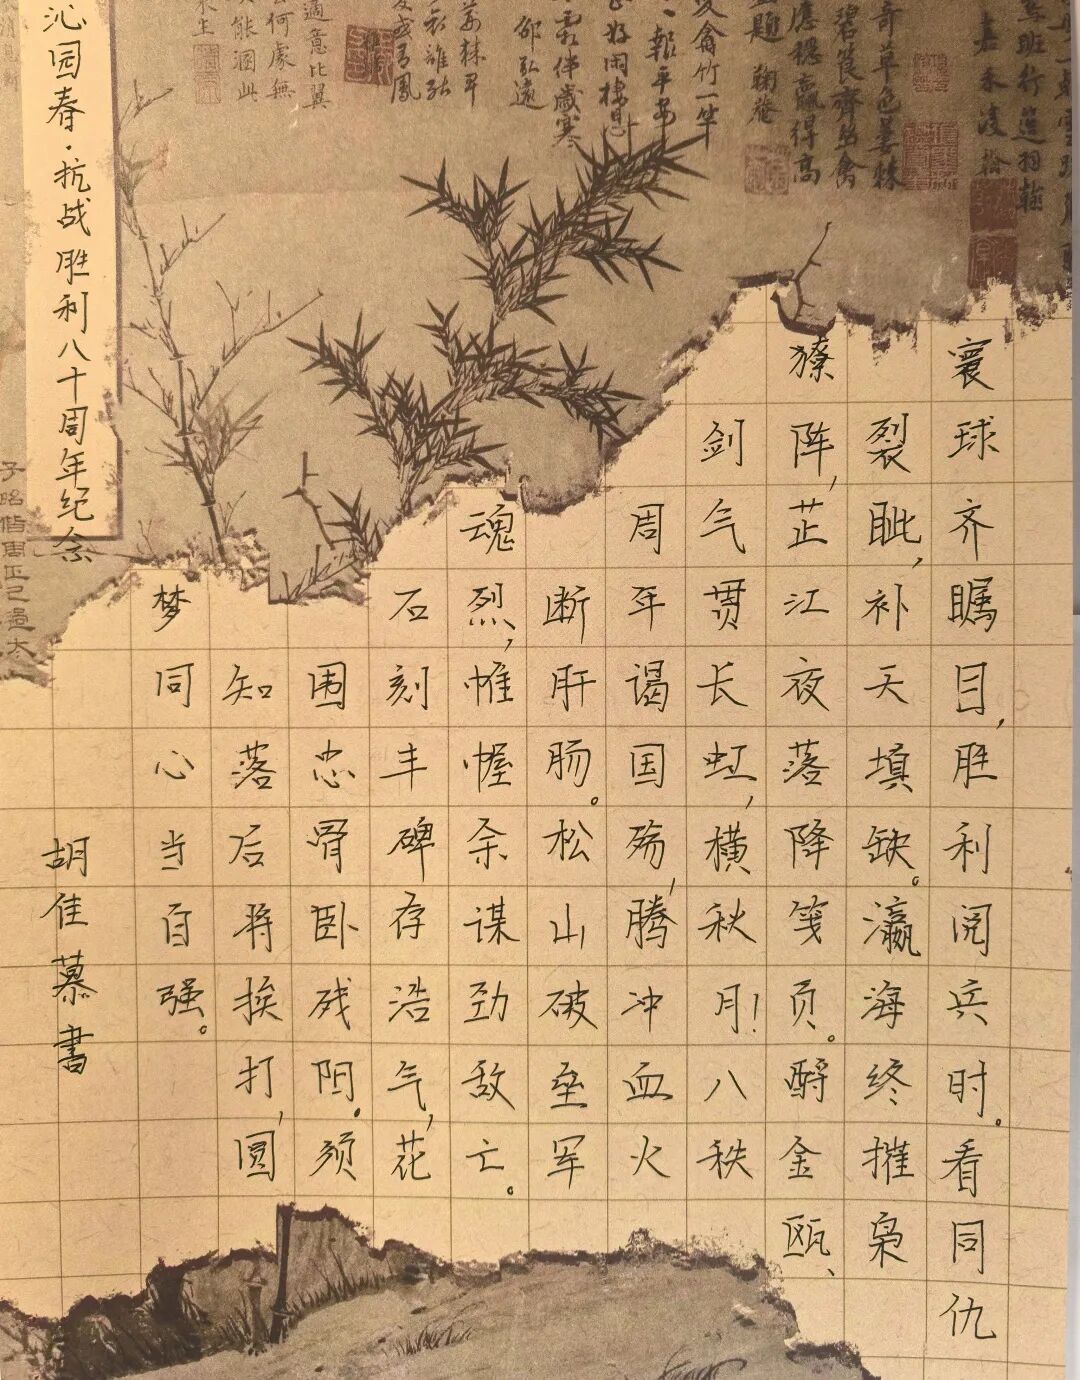 沁园春·抗战胜利八十周年纪念
寰球齐瞩目,胜利阅兵时。看同仇
裂眦,补天填缺。瀛海终摧枭
獠阵,芷江夜落降笺页。酹金瓯、
剑气贯长虹,横秋月!八秩
周年谒国殇,腾冲血火
断肝肠。松山破垒军
魂烈,惟幄余谋劲敌亡。
石刻丰碑存浩气,花
围忠骨卧残阳。须
知落后将挨打,圆
梦同心当自强。
胡佳慕書